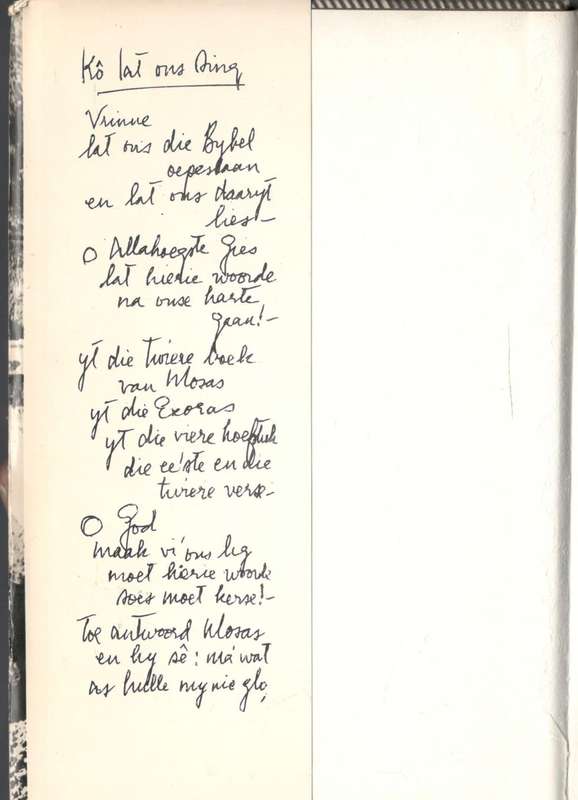 Kô lat ons sing
Vrinne
lat ons die Bybel
oepeslaan
en lat ons daaryt
lies –
O Allahoegste Gies
lat hierie woorde
na onse harte
gaan! –
yt die twiere boek
van Mosas
yt die Exoras
yt die viere hoefstuk
die ee'ste en die
twiere verse –
O God
maak vi' ons lig
moet hierie woorde
soes moet kerse! –
Toe antwoord Mosas
en hy sê: ma' wat
as hulle my nie glo,